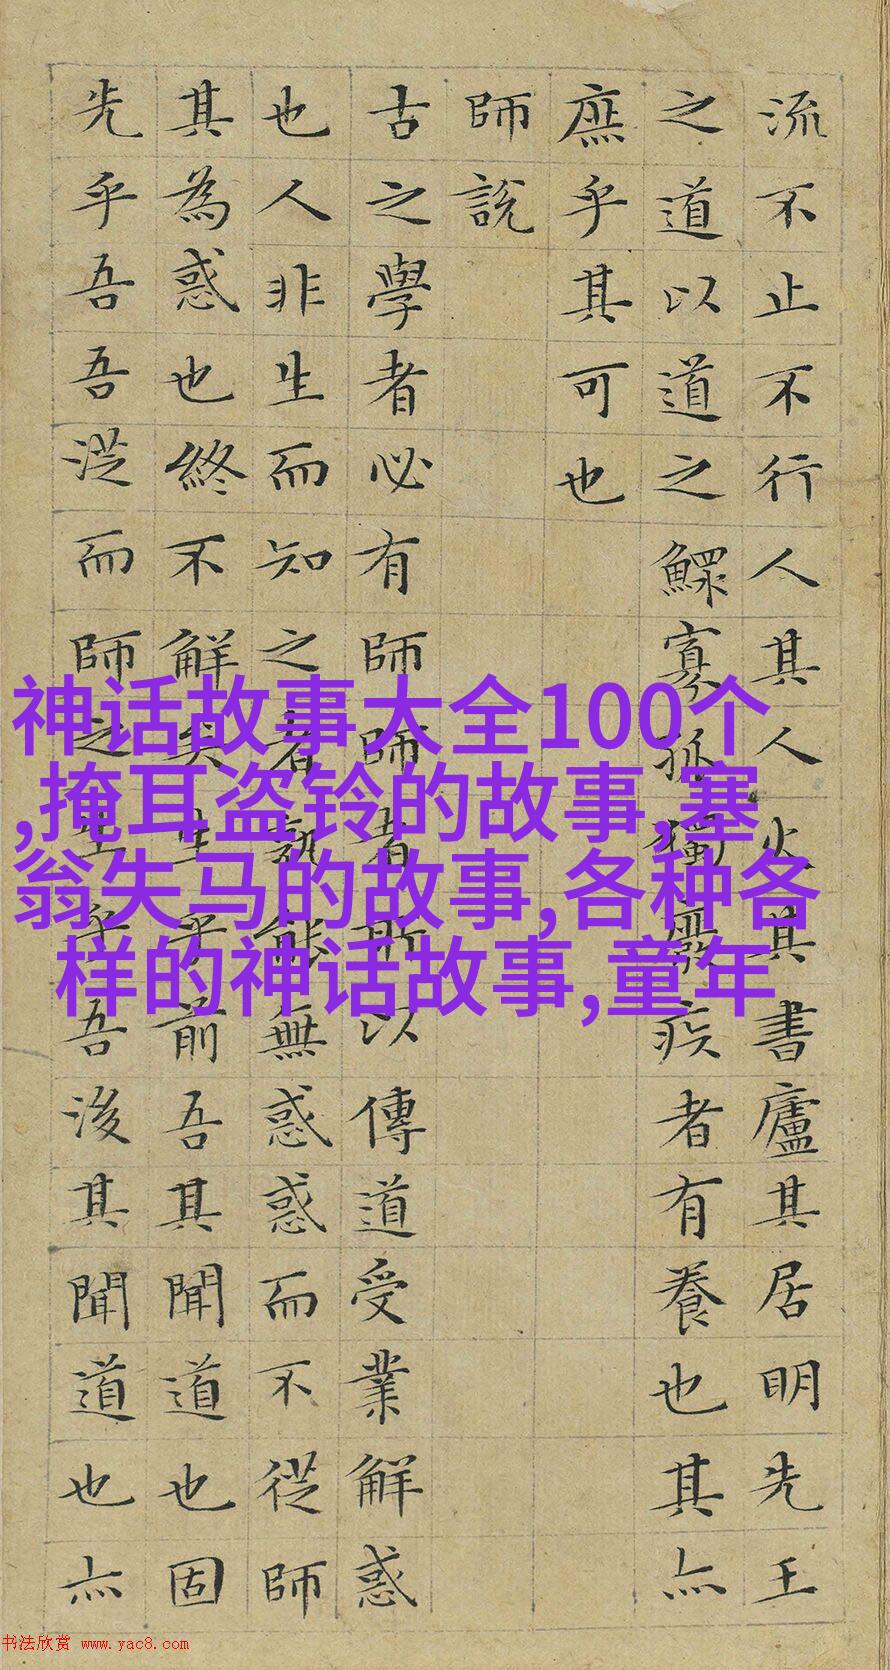 神话故事大全100个
,掩耳盗铃的故事,塞
翁失马的故事,各种各
样的神话故事,童年
流不止不行人其人火其書廬其居明先王
之道以道之鰥寡孤獨廢疾者有養也其亦
庶乎其可也
師說
古之學者必有師師者所以傳道受業解惑
也人非生而知之者孰能無惑惑而不從師
其為惑也終不解矣生乎前吾其聞道也固
先乎吾吾從而師之生乎吾後其聞道也亦
书法欣赏 www.yac8.com